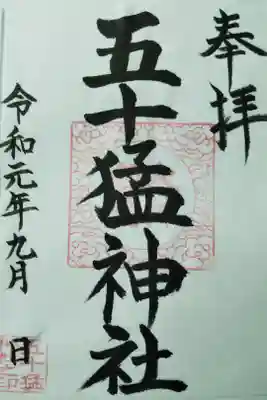 奉拝
五十猛神社
令和元年九月 日